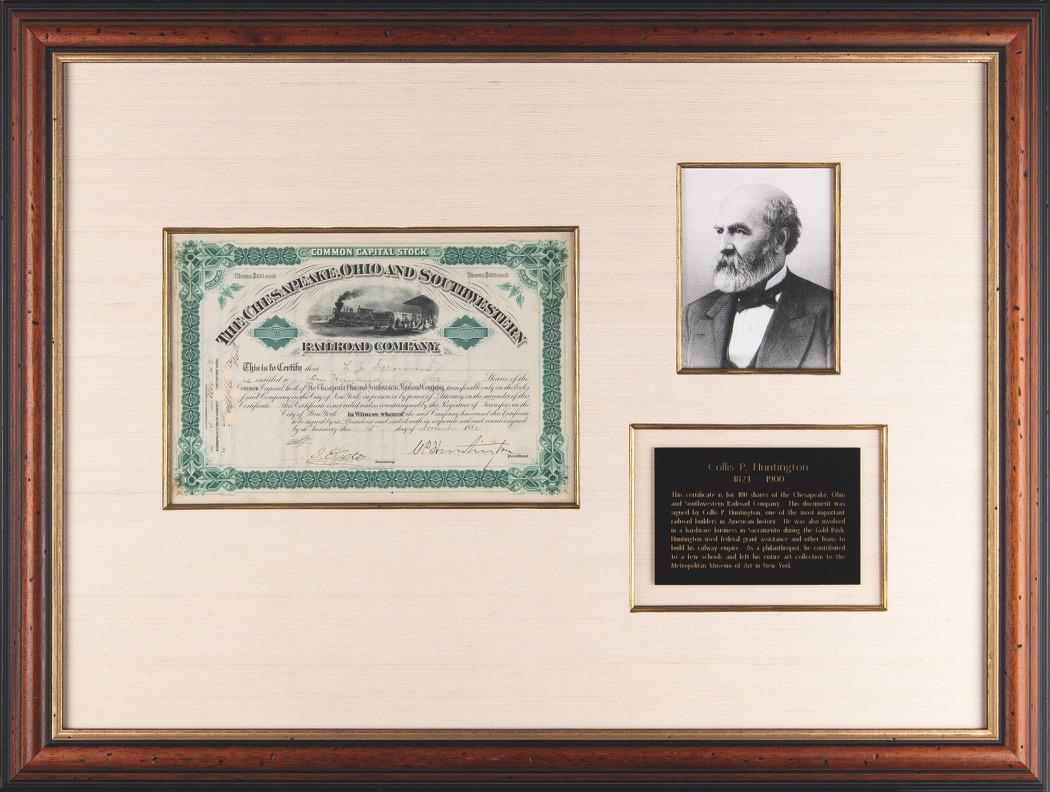 COMMON CAPITAL STOCK
Shares $100 each
Shares $100 each
THE CHESAPEAKE, OHIO AND SOUTHWESTERN
RAILROAD COMPANY.
This is to Certify that
is entitled to One Hundred Shares of the
Common Capital Stock of The Chesapeake, Ohio and Southwestern Railroad Company, transferable only on the books
of said Company in the City of New York, in person or by power of Attorney on the surrender of this
Certificate. This Certificate is not valid unless countersigned by the Registrar of Transfers in the
City of New York. In Witness whereof the said Company has caused this Certificate
to be signed by its President and sealed with its corporate seal and countersigned
by its Secretary this 15 day of November 188
Secretary
C P Huntington
President
Collis P. Huntington
1821 - 1900
This certificate is for 100 shares of the Chesapeake, Ohio
and Southwestern Railroad Company. This document was
signed by Collis P. Huntington, one of the most important
railroad builders in American history. He was also involved
in a hardware business in Sacramento during the Gold Rush.
Huntington used federal grant assistance and other loans to
build his railway empire. As a philanthropist, he contributed
to a few schools and left his entire art collection to the
Metropolitan Museum of Art in New York.